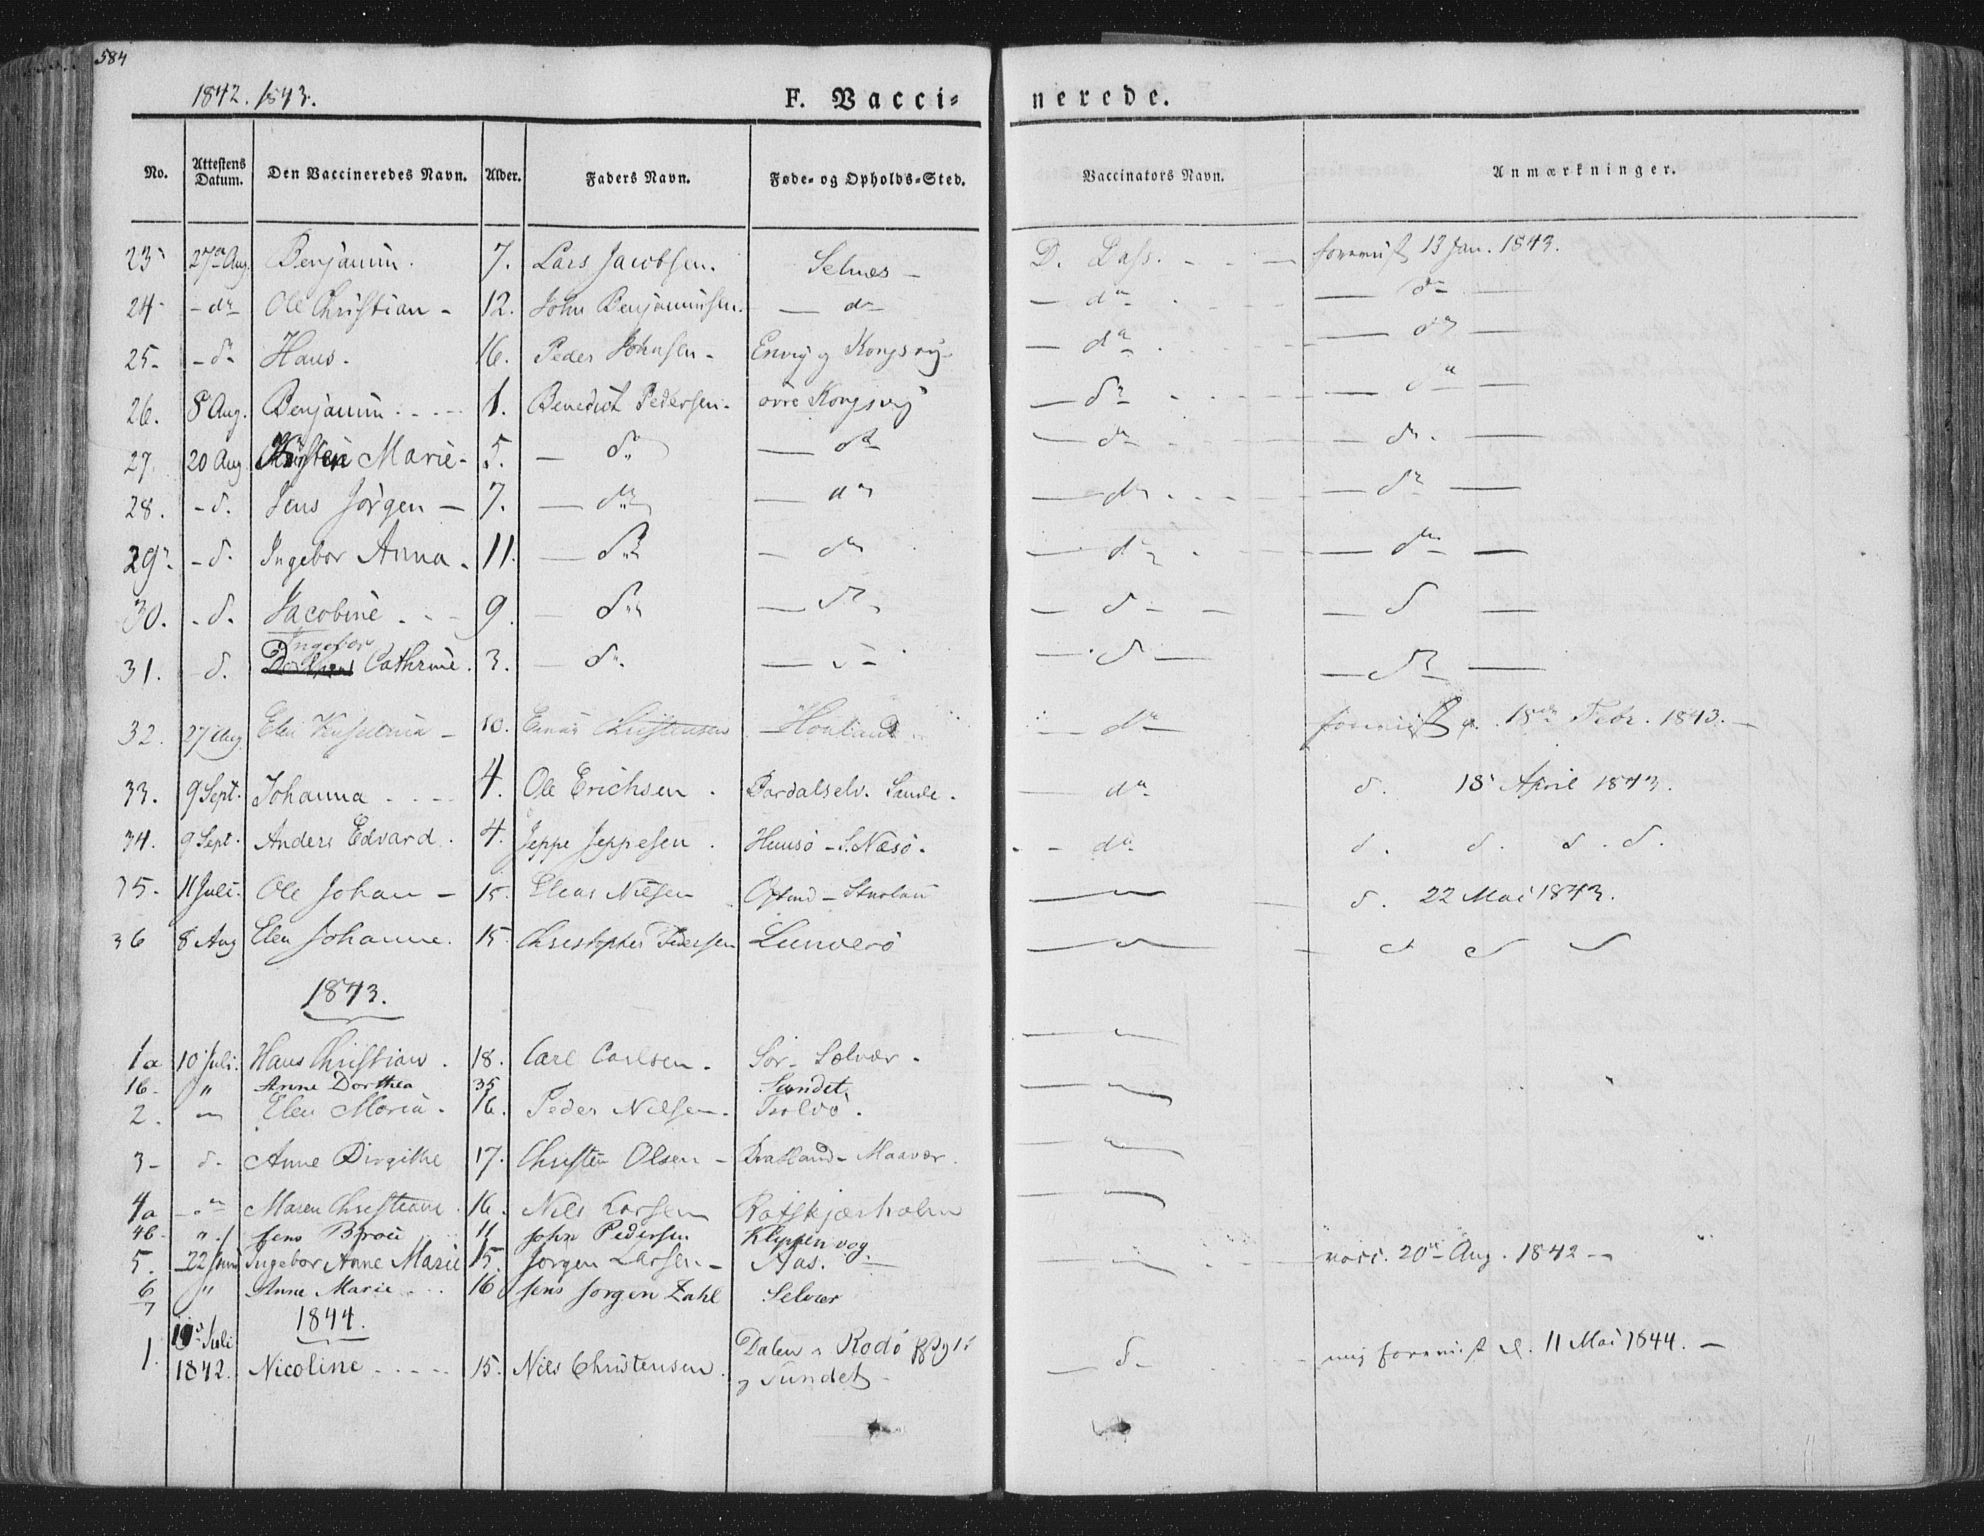 584
1842. 1843.
F. Vacci- nerede.
No. Attestens Datum. Den Vaccineredes Navn. Alder. Faders Navn. Føde- og Opholds-Sted. Vaccinators Navn. Anmærkninger.
23 27de Aug. Benjamin. 7. Lars Jacobsen. Selnes - D. Dass. - - - forevist 13 Jan. 1843.
24 - do Ole Christian - 12. John Benjaminsen. - do - do - do -
25. - do Hans. 16. Peder Johnsen - Envig og Kongsvig - do - do -
26. 8 Aug. Benjamin - - - 1. Benedict Pedersen - övre Kongsvig - do - do -
27. 20 Aug Marie - 5. - do - do - do - do. -
28. - d. Jens Jörgen - 7. - do - do - do - do -
29. - d. Ingebor Anna - 11. - do - do - do - do -
30. - d. Jacobine - - 9. - do - do - d - - d -
Ingebor
31. - d. Cathrine. 3. - do - d - - d - - do -
32. 27 Aug Elen - 10. Christensen - do forevist 18de Febr. 1843. -
33. 9 Sept. Johanna - - - 4. Ole Erichsen. Bardalselv. Sande. do d. 18 April 1843.
34. 9 Sept. Anders Edvard. 4. Jeppe Jeppesen. Huusö - S. Næsö. - do d. d. d. d.
35. 11 Juli. Ole Johan - 15. Elias Nilsen - d. 22 Mai 1843.
36 8 Aug Elen Johanne. 15. Christopher Pedersen Lunderö - d d d
1843.
1a 10 Juli. Hans Christian. 18. Carl Carlsen. Sör- Solvær.
1b. " Anne Dorthea 35 Sundet,
2. " Elen Maria. 16. Peder Nilsen. Troldö.
3 - d. Anne Birgithe 17. Christen Olsen - Bratland - Maavær.
4a - " Maren Christiane. 16. Nils Larsen Rotskjærholm
4b. " Jens 11 John Pedersen Klippenvog
5. 22 Juni Ingebor Anne Marie 15. Jörgen Larsen - Aas. - vacc. 20de Aug. 1842 -
6 " Anne Marie - - 16 Jens Jorgen Zahl Selvær
7
1844.
1. 10 Juli 1842. Nicoline - - - - 15. Nils Christensen. Dalen Rodö og Sundet - - d - forevist d. 11 Mai 1844. -